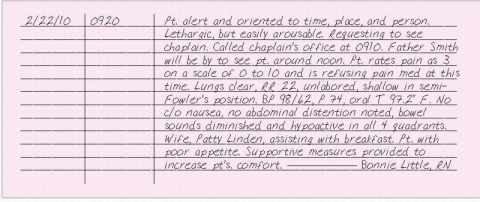 2/22/10 0920 Pt. alert and oriented to time, place, and person.
Lethargic, but easily arousable. Requesting to see
chaplain. Called chaplain's office at 0910. Father Smith
will be by to see pt. around noon. Pt. rates pain as 3
on a scale of 0 to 10 and is refusing pain med at this
time. Lungs clear, RR 22, unlabored, shallow in semi-
Fowler's position. BP 98/62, P 74, oral T 97.2° F. No
c/o nausea, no abdominal distention noted, bowel
sounds diminished and hypoactive in all 4 quadrants.
Wife, Patty Linden, assisting with breakfast. Pt. with
poor appetite. Supportive measures provided to
increase pt's. comfort. ———— Bonnie Little, RN